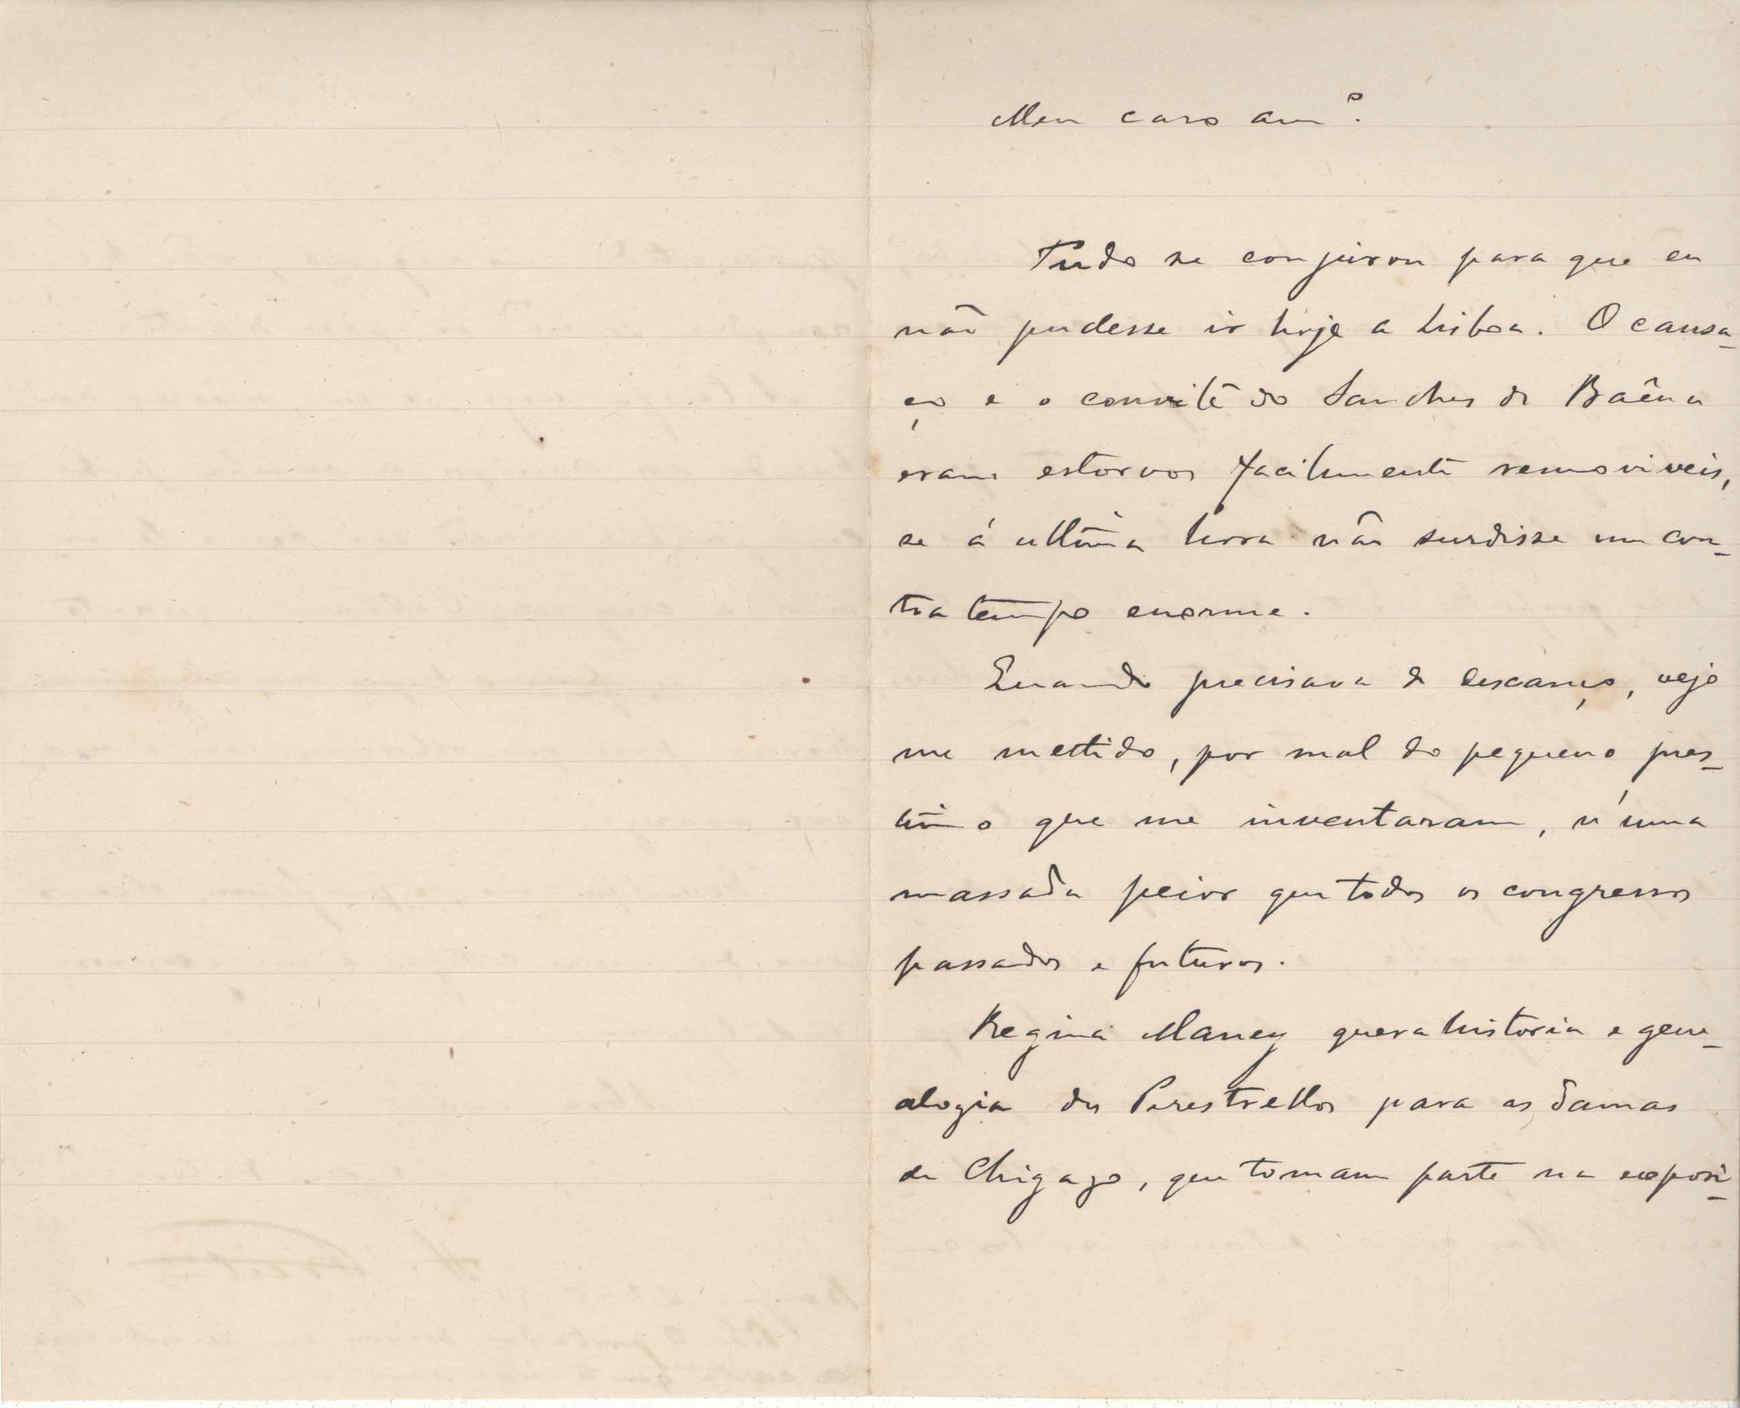 Meu caro amº.
Tudo se conjurou para que eu
não pudesse ir hoje a Lisboa. O cansa-
ço e o convite do Sanches de Baêna
eram estorvos facilmente removiveis,
se á ultima hora não surdisse um con-
tratempo enorme.
Quando precisava de descanço, vejo
me mettido, por mal do pequeno pres-
timo que me inventaram, n'uma
massada peior que todos os congressos
passados e futuros.
Regina Maney quer a historia e gene-
alogia dos Perestrellos para as damas
de Chigago, que tomam parte na exposi-